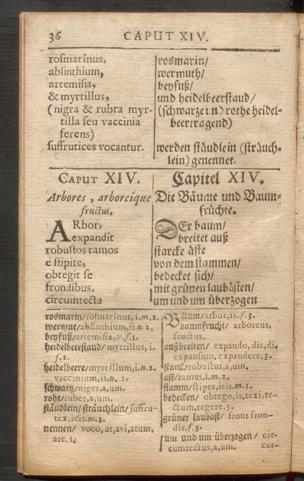 36 CAPUT XIV.
rosmarinus,
absinthium,
artemisia,
& myrtillus,
(nigra & rubra myr-
tilla seu vaccinia
ferens)
suffrutices vocantur.
rosmarin/
wermuth/
beyfuß/
und heidelbeerstaud/
rothe heidel-
beere tragend)
werden stäudlein (sträuch-
lein) genennet.
CAPUT XIV.
Arbores, arboreique
fructus.
ARbor,
expandit
robustos ramos
e stipite,
obtegit se
frondibus,
circumtecta
Capitel XIV.
Die Bäume und Baum-
früchte.
DEr baum/
breitet auß
starcke äste
von dem stammen/
bedecket sich/
mit grünen laubästen/
um und um überzogen
rosmarin/rosmarinus, i.m.2.
wermut/absinthium, ii.n.2.
beyfuß/artemisia, æ.f.1.
heidelbeerstaud/myrtillus, i.
f.2.
heidelbeere/myrtillum, i.n.2.
vaccinium, ii.n.2.
schwarz/niger, a, um.
roht/ruber, a, um.
stäudlein/sträuchlein/suffru-
tex, icis.m.3.
nennen/voco, as, avi, atum,
are.1.
BAum/arbor, is.f.3.
baumfrucht/arboreus,
fructus.
außbreiten/expando, dis, di,
expansum, expandere.3.
starck/robustus, a, um.
ast/ramus, i.m.2.
stamm/stipes, itis.m.3.
bedecken/obtego, is, texi, te-
ctum, tegere.3.
grüner laubast/frons fron-
dis.f.3.
um und um überzogen/cir-
cumtectus, a, um.
cor-